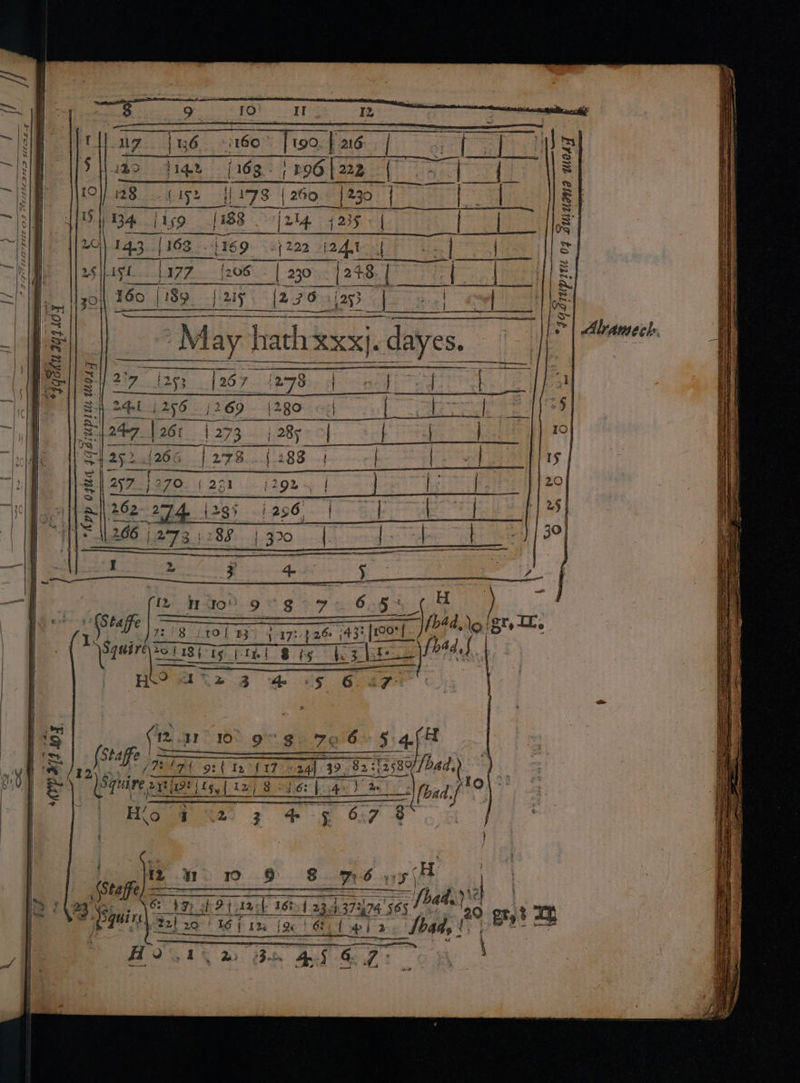 8 9 10 11 12
1 117 136 160 190 216
5 120 142 163 196 222
10 128 152 178 200 230
15 134 159 188 214 235
20 143 168 169 222 241
25 151 177 206 230 248
30 160 189 215 236 253
From euening to midnight.
Alramech.
May hath xxxj. dayes.
For the nyght.
From midnight vnto day.
237 253 267 278 1
241 256 269 280 5
247 261 273 285 10
252 266 278 288 15
257 270 281 292 20
262 274 285 296 25
266 273 288 300 30
1 2 3 4 5
12 11 10 9 8 7 6 5 H
Staffe 7 8 10 13 17 26 43 100 shad.
1 10 gr, II.
Squire 20 18 15 12 8 5 3 1 shad.
Ho 1 2 3 4 5 6 7
For the daye
12 11 10 9 8 7 6 5 4 H
Staffe 7 7 9 12 17 24 39 82 2589 shad.
12 10
Squire 21 19 15 12 8 6 4 2 shad.
Ho 1 2 3 4 5 6 7 8
12 11 10 9 8 7 6 5 H
Staffe 6 7 9 12 16 23 37 74 565 shad.
23 20 gr, II
Squire 22 20 16 12 9 6 4 2 shad,
Ho 1 2 3 4 5 6 7